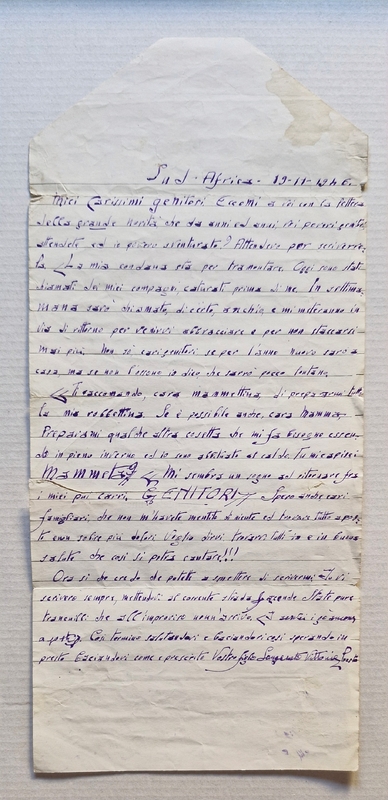 Sud-Africa - 19-11-1946.
Miei Carissimi genitori Eccomi a voi con la lettera
della grande novità che da anni ed anni voi poveri genitori
attendete ed io povero sventurato? Attendevo per scrivervi-
la. La mia condana sta per tramontare. Oggi sono stati
chiamati dei miei compagni catturati prima di me. In settima-
mana sarò chiamato, di certo, anch'io e mi metteranno in
via di ritorno per venirvi abbracciare e per non staccarsi
mai più. Non sò cari genitori se per l'anno nuovo sarò a
casa ma se non l'ersono io dico che sarrò pocco lontano.
Ti raccomando, cara mammettina, di prepararmi tutta
la mia robbettina. Se è possibile anche, cara Mamma-
Preparami qualche altra cosetta che mi fa bisogno essen-
do in pieno inverno ed io sono abbituato al caldo. Tu mi capisci
Mammetta Mi sembra un sogno ad ritornare fra
i miei più carri. GENITORI Spero anche cari
famigliari, che non m'havete mentito di niente ed trovare tutto a pos-
to enon sofrire più dolori. Voglio dirvi trovarvi tutti in e in buona
salute che così si potrà cantare!!!
Ora si che credo che potete a smettere di scrivermi. Io vi
scriverò sempre, mettendovi al corrente strada facendo. State pure
tranquilli che all'improviso non v'arrivo.
a posto. Con termino salutandovi e baciandovi così sperando in
presto Baciandovi come e presente Vostro figlio Vittorio